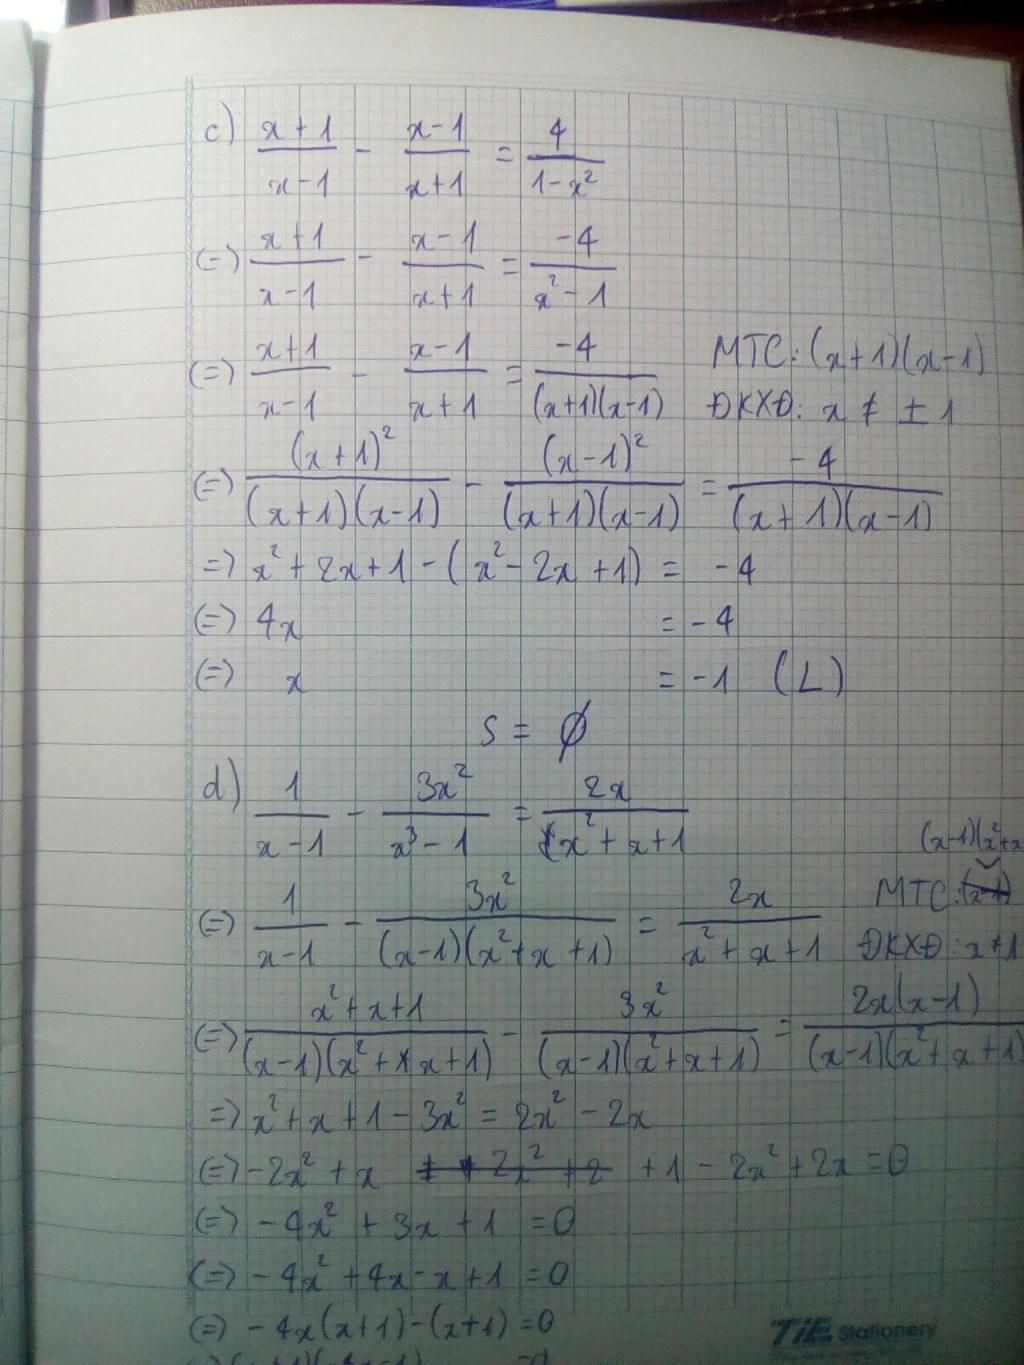 c) \frac{x+1}{x-1} - \frac{x-1}{x+1} = \frac{4}{1-x²}
(=) \frac{x+1}{x-1} - \frac{x-1}{x+1} = \frac{-4}{x²-1}
(=) \frac{x+1}{x-1} - \frac{x-1}{x+1} = \frac{-4}{(x+1)(x-1)} MTC: (x+1)(x-1)
ĐKXĐ: x ≠ ±1
(=) \frac{(x+1)²}{(x+1)(x-1)} - \frac{(x-1)²}{(x+1)(x-1)} = \frac{-4}{(x+1)(x-1)}
=) x² + 2x + 1 - (x² - 2x + 1) = -4
(=) 4x = -4
(=) x = -1 (L)
S = ∅
d) \frac{1}{x-1} - \frac{3x²}{x³-1} = \frac{2x}{x²+x+1}
(x-1)(x²+x
(=) \frac{1}{x-1} - \frac{3x²}{(x-1)(x²+x+1)} = \frac{2x}{x²+x+1} MTC:
ĐKXĐ: x≠1
(=) \frac{x²+x+1}{(x-1)(x²+x+1)} - \frac{3x²}{(x-1)(x²+x+1)} = \frac{2x(x-1)}{(x-1)(x²+x+1)}
=) x² + x + 1 - 3x² = 2x² - 2x
(=) -2x² + x + 1 - 2x² + 2x = 0
(=) -4x² + 3x + 1 = 0
(=) -4x² + 4x - x + 1 = 0
(=) -4x(x+1) - (x+1) = 0
TiE Stationery